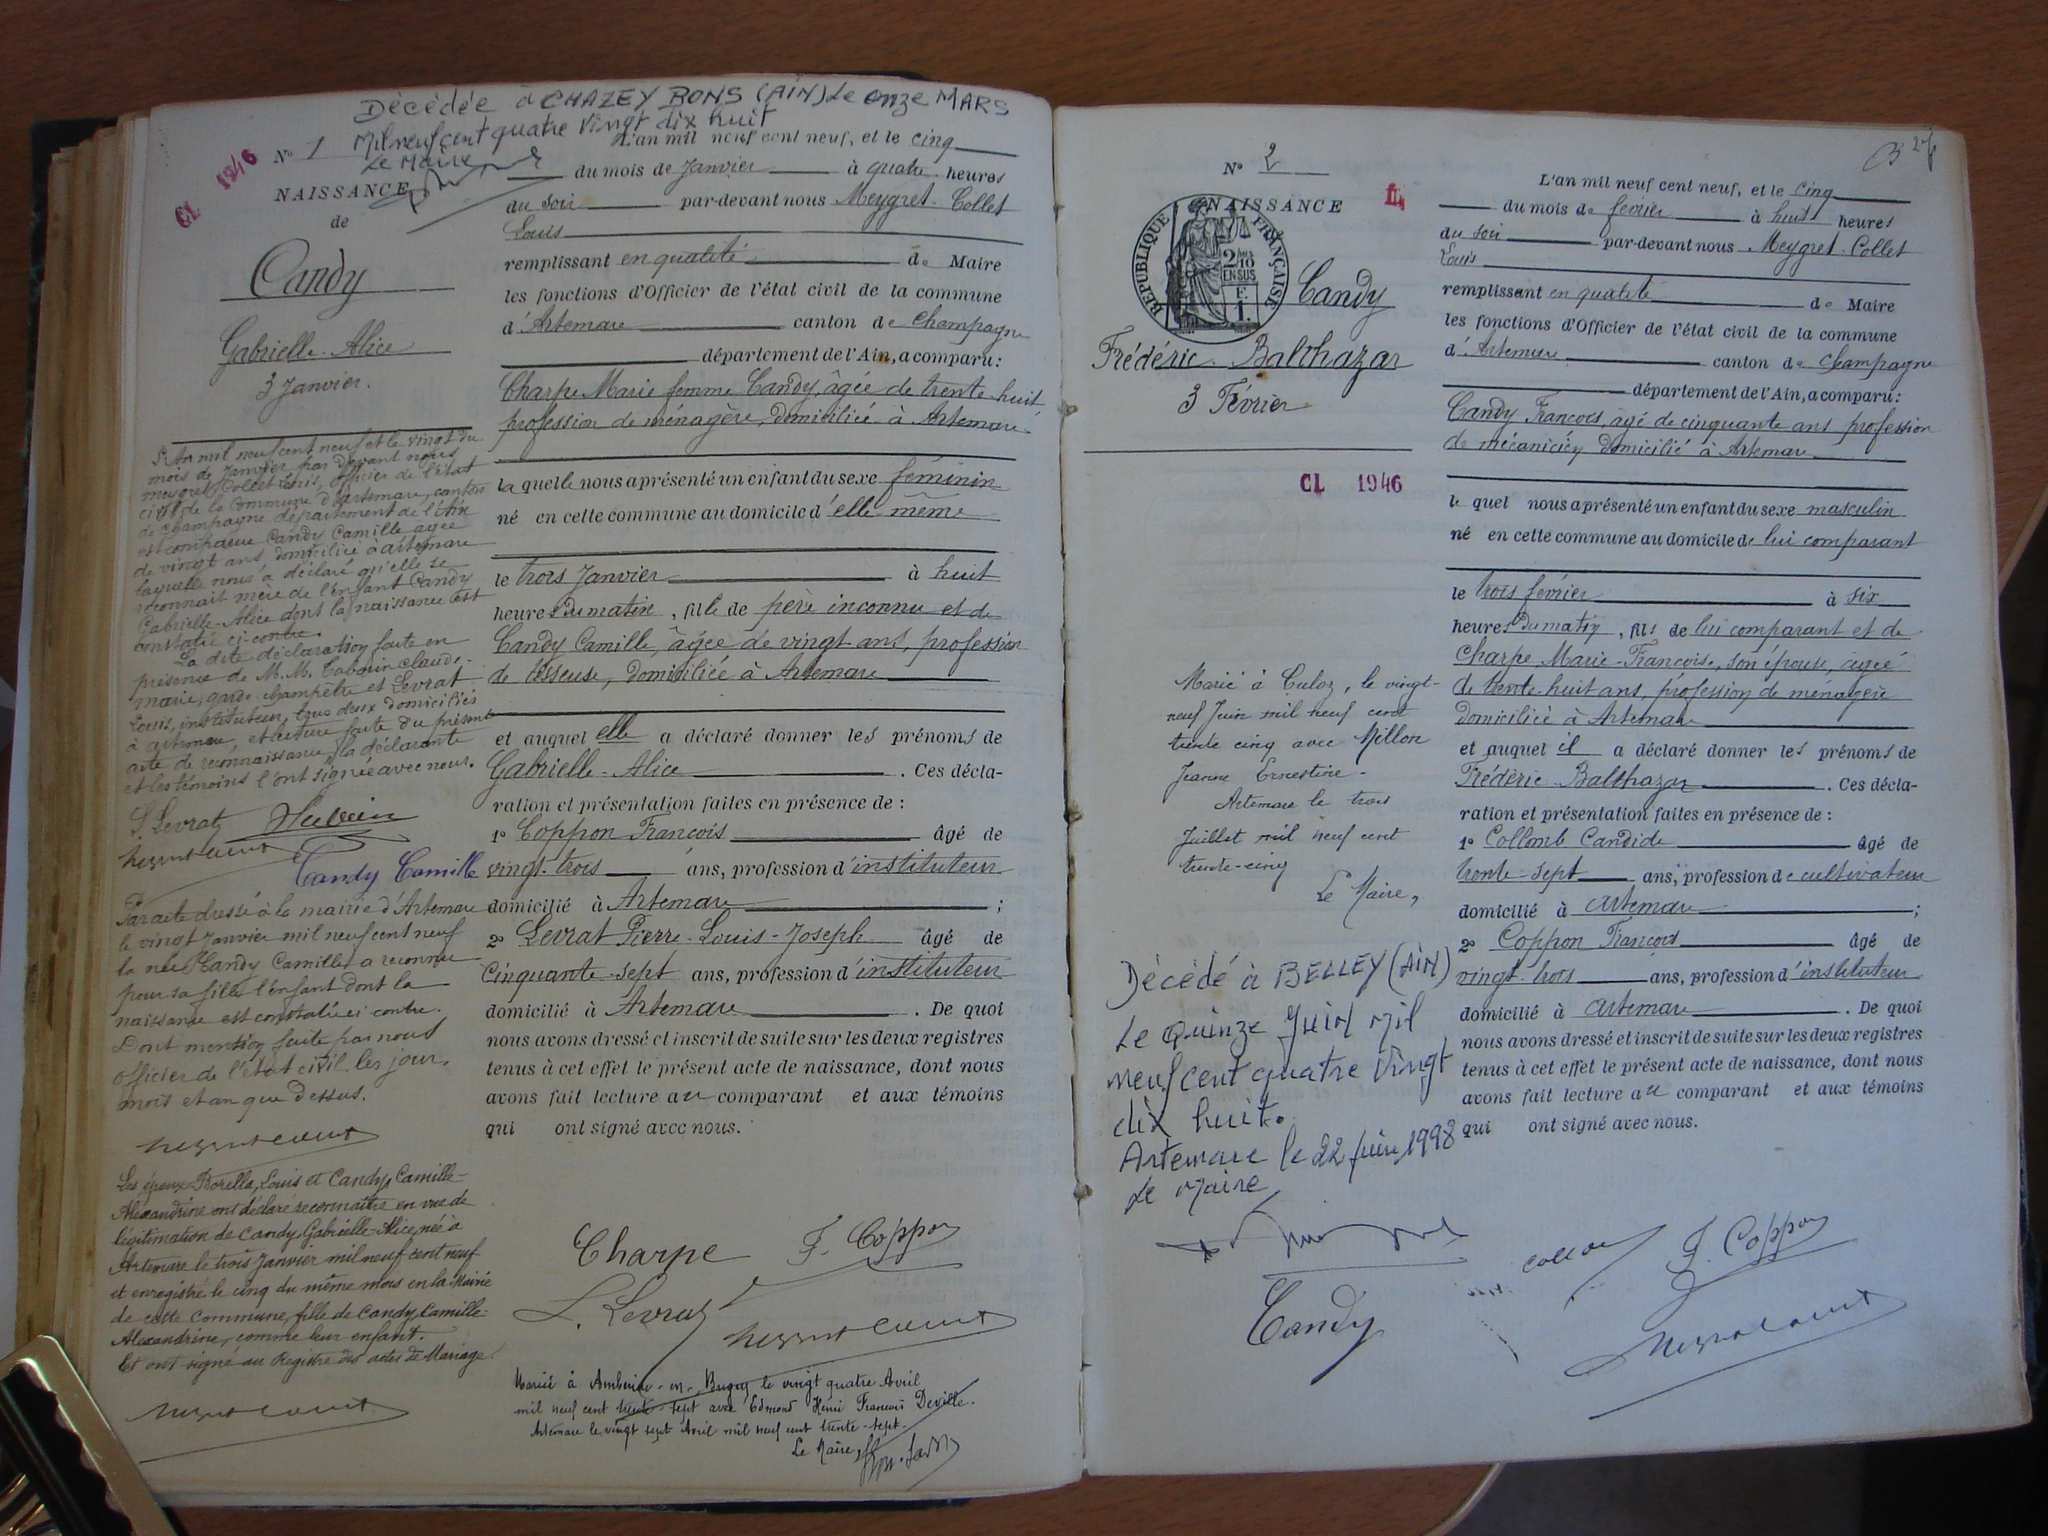 Décédée à CHAZEY BONS (AIN) Le onze MARS
Mil neuf cent quatre Vingt dix huit
Le Maire
CL 1946
N° 1
NAISSANCE
de
Candy
Gabrielle-Alice
3 Janvier.
L'An mil neuf cent neuf et le vingt du
mois de Janvier par devant nous
meygret Collet Louis, officier de l'état
civil de la Commune d'Artemare, canton
de Champagne département de l'Ain
est comparue Candy Camille, agée
de vingt ans, domiciliée à artemare
laquelle nous a déclaré qu'elle se
reconnait mère de l'enfant Candy
Gabrielle-Alice dont la naissance est
constatée ci-contre.
La dite déclaration faite en
présence de M.M. Claude-
marie, garde-champêtre et Levrat
Louis, instituteur, tous deux domiciliés
à artemare, et lecture faite du présent
acte de reconnaissance, la déclarante
et les témoins l'ont signée avec nous.
L. Levrat
Candy Camille
Par acte dressé à la mairie d'Artemare
le vingt Janvier mil neuf cent neuf
la née Candy Camille a reconnu
pour sa fille l'enfant dont la
naissance est constatée ci contre.
Dont mention faite par nous
officier de l'état civil les jour,
mois et an que dessus.
Les époux Borella, Louis et Candy, Camille-
Alexandrine ont déclaré reconnaître en vue de
légitimation de Candy, Gabrielle-Alice, née à
Artemare le trois Janvier mil neuf cent neuf
et enregistré le cinq du même mois en la Mairie
de cette Commune, fille de Candy, Camille-
Alexandrine, comme leur enfant.
Et ont signé au Registre des actes de Mariage.
L'an mil neuf cent neuf, et le cinq
du mois de Janvier à quatre heures
du soir par-devant nous Meygret-Collet
Louis
remplissant en qualité de Maire
les fonctions d'Officier de l'état civil de la commune
d'Artemare canton de Champagne
département de l'Ain, a comparu:
Charpe Marie femme Candy, âgée de trente huit
profession de ménagère, domiciliée à Artemare
la quelle nous a présenté un enfant du sexe féminin
né en cette commune au domicile d'elle-même
le trois Janvier à huit
heures du matin, fille de père inconnu et de
Candy Camille, âgée de vingt ans, profession
de tisseuse, domiciliée à Artemare
et auquel elle a déclaré donner les prénoms de
Gabrielle-Alice . Ces décla-
ration et présentation faites en présence de :
1° Coppon François âgé de
vingt-trois ans, profession d'instituteur
domicilié à Artemare ;
2° Levrat Pierre-Louis-Joseph âgé de
Cinquante-sept ans, profession d'instituteur
domicilié à Artemare . De quoi
nous avons dressé et inscrit de suite sur les deux registres
tenus à cet effet le présent acte de naissance, dont nous
avons fait lecture au comparant et aux témoins
qui ont signé avec nous.
Charpe F. Coppon
L. Levrat
Marié à Ambérieu-en-Bugey le vingt quatre Avril
mil neuf cent trente-sept avec Edmond Henri François Deville.
Artemare le vingt sept Avril mil neuf cent trente-sept.
Le Maire,
N° 2
NAISSANCE
REPUBLIQUE FRANÇAISE
2/10
EN SUS
Candy
Frédéric-Balthazar
3 Février
CL 1946
Marié à Culoz, le vingt-
neuf Juin mil neuf cent
trente cinq avec Millon
Jeanne Ernestine.
Artemare le trois
Juillet mil neuf cent
trente-cinq
Le Maire,
Décédé à BELLEY (AIN)
Le Quinze JUIN Mil
neuf cent quatre Vingt
dix huit.
Artemare le 22 juin 1998
Le Maire
Candy
L'an mil neuf cent neuf, et le cinq
du mois de février à huit heures
du soir par-devant nous Meygret-Collet
Louis
remplissant en qualité de Maire
les fonctions d'Officier de l'état civil de la commune
d'Artemare canton de Champagne
département de l'Ain, a comparu:
Candy François, âgé de cinquante ans profession
de mécanicien domicilié à Artemare
le quel nous a présenté un enfant du sexe masculin
né en cette commune au domicile de lui comparant
le trois février à six
heures du matin, fils de lui comparant et de
Charpe Marie-Françoise, son épouse, agée
de trente-huit ans, profession de ménagère
domiciliée à Artemare
et auquel il a déclaré donner les prénoms de
Frédéric-Balthazar . Ces décla-
ration et présentation faites en présence de :
1° Collomb Candide âgé de
trente-sept ans, profession de cultivateur
domicilié à Artemare ;
2° Coppon François âgé de
vingt-trois ans, profession d'instituteur
domicilié à Artemare . De quoi
nous avons dressé et inscrit de suite sur les deux registres
tenus à cet effet le présent acte de naissance, dont nous
avons fait lecture au comparant et aux témoins
qui ont signé avec nous.
F. Coppon